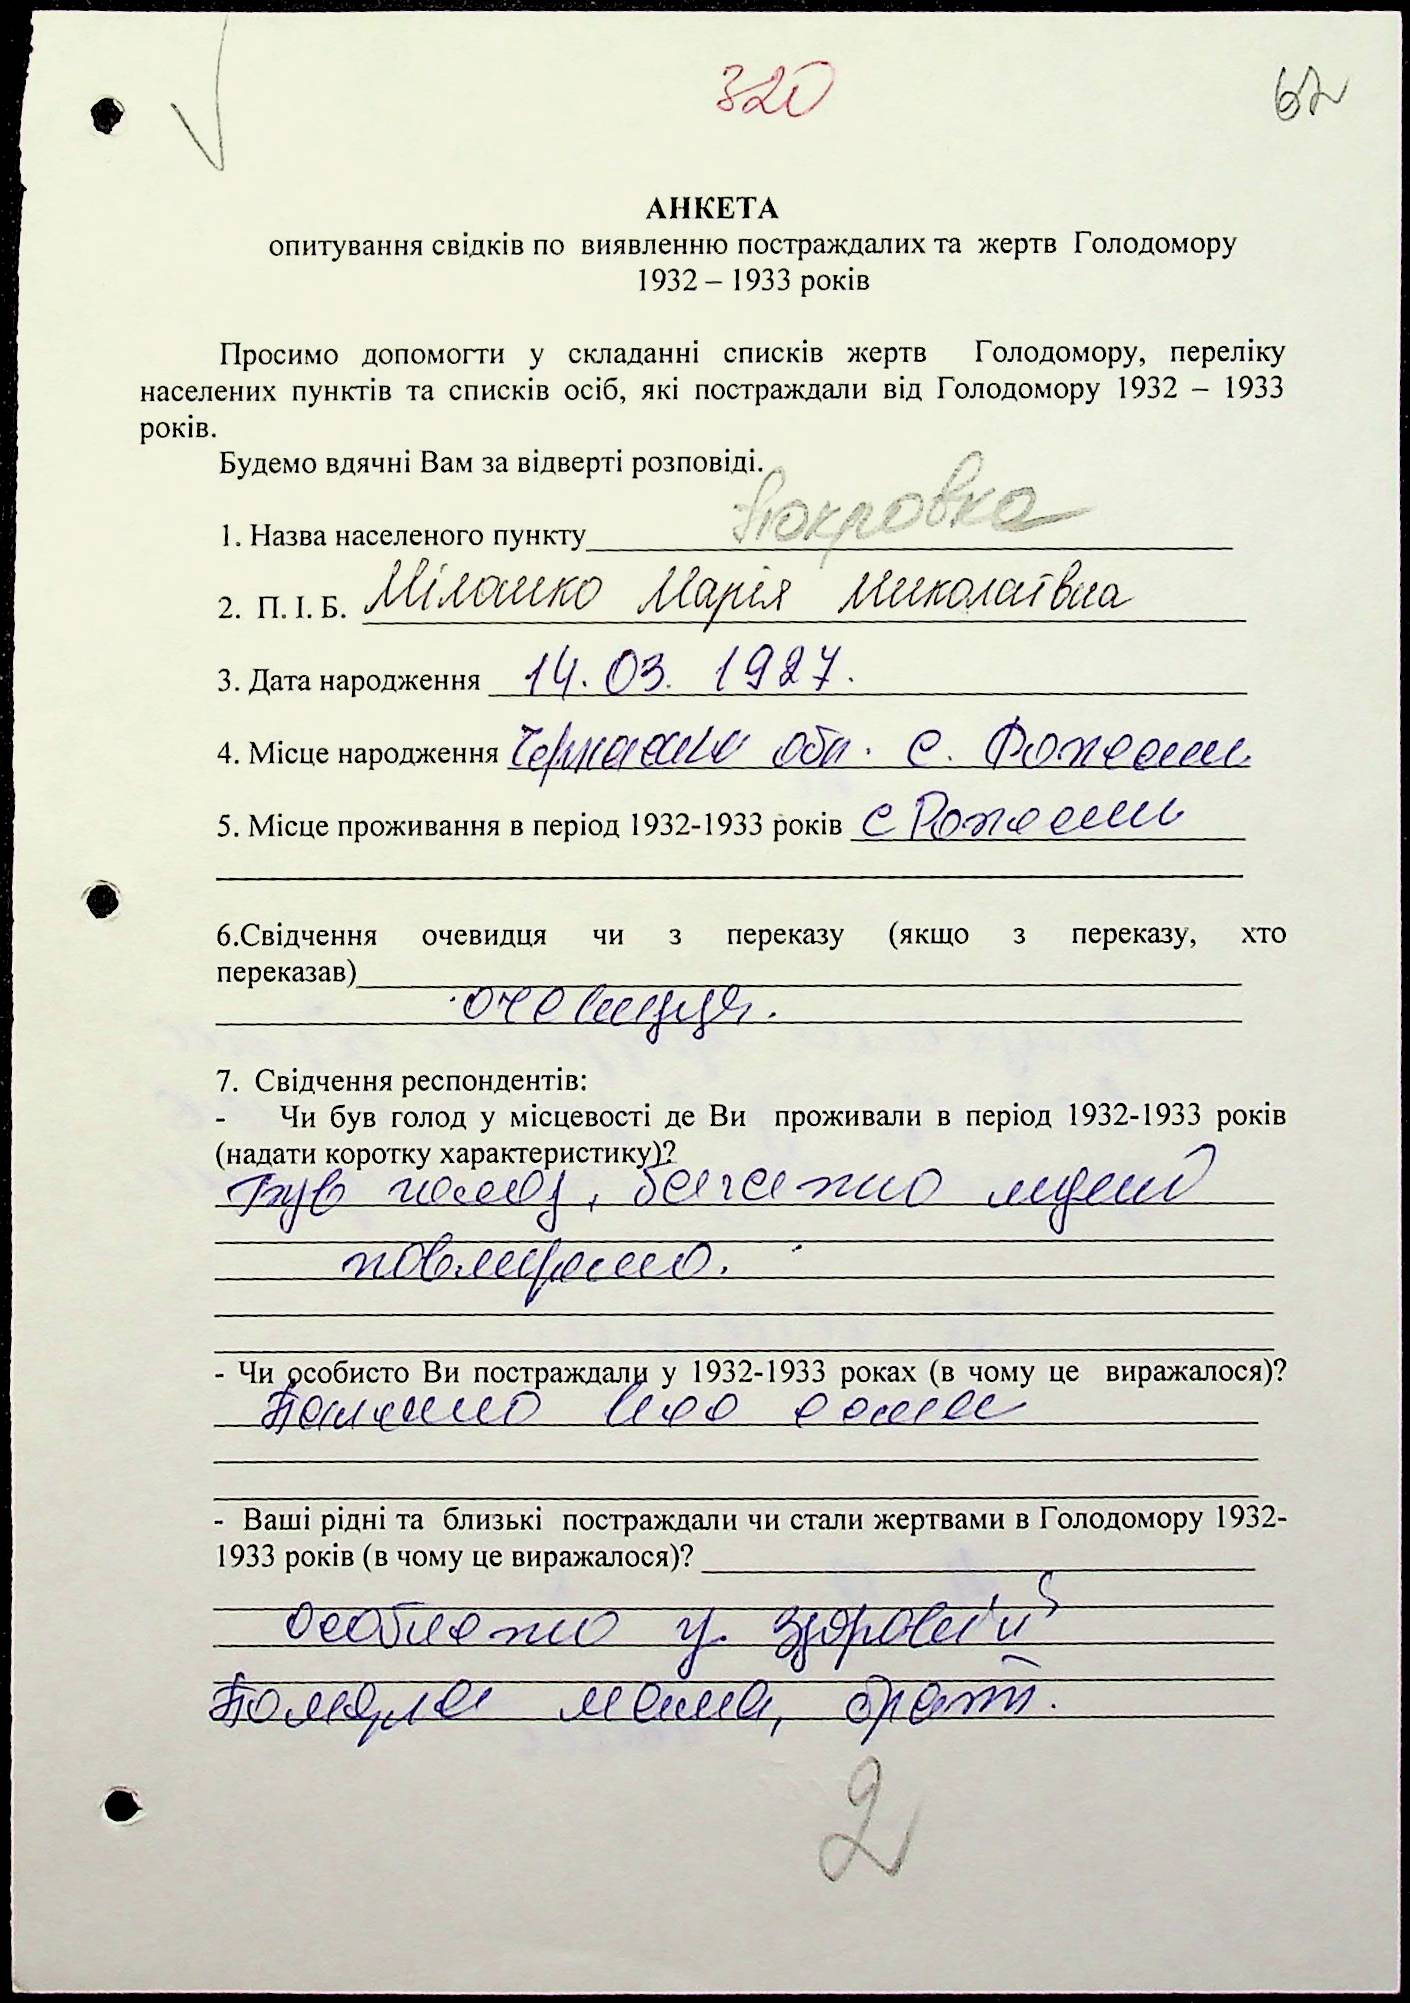 320
62
АНКЕТА
опитування свідків по виявленню постраждалих та жертв Голодомору
1932 – 1933 років
Просимо допомогти у складанні списків жертв Голодомору, переліку
населених пунктів та списків осіб, які постраждали від Голодомору 1932 – 1933
років.
Будемо вдячні Вам за відверті розповіді.
1. Назва населеного пункту Покровка
2. П. І. Б. Мілашко Марія Миколаївна
3. Дата народження 14.03. 1927.
4. Місце народження обл. с.
5. Місце проживання в період 1932-1933 років с
6.Свідчення очевидця чи з переказу (якщо з переказу, хто
переказав)
очевидця.
7. Свідчення респондентів:
- Чи був голод у місцевості де Ви проживали в період 1932-1933 років
(надати коротку характеристику)?
Був голод, багато людей
повмирало.
- Чи особисто Ви постраждали у 1932-1933 роках (в чому це виражалося)?
- Ваші рідні та близькі постраждали чи стали жертвами в Голодомору 1932-
1933 років (в чому це виражалося)?
у
Померла мама, брат.
2